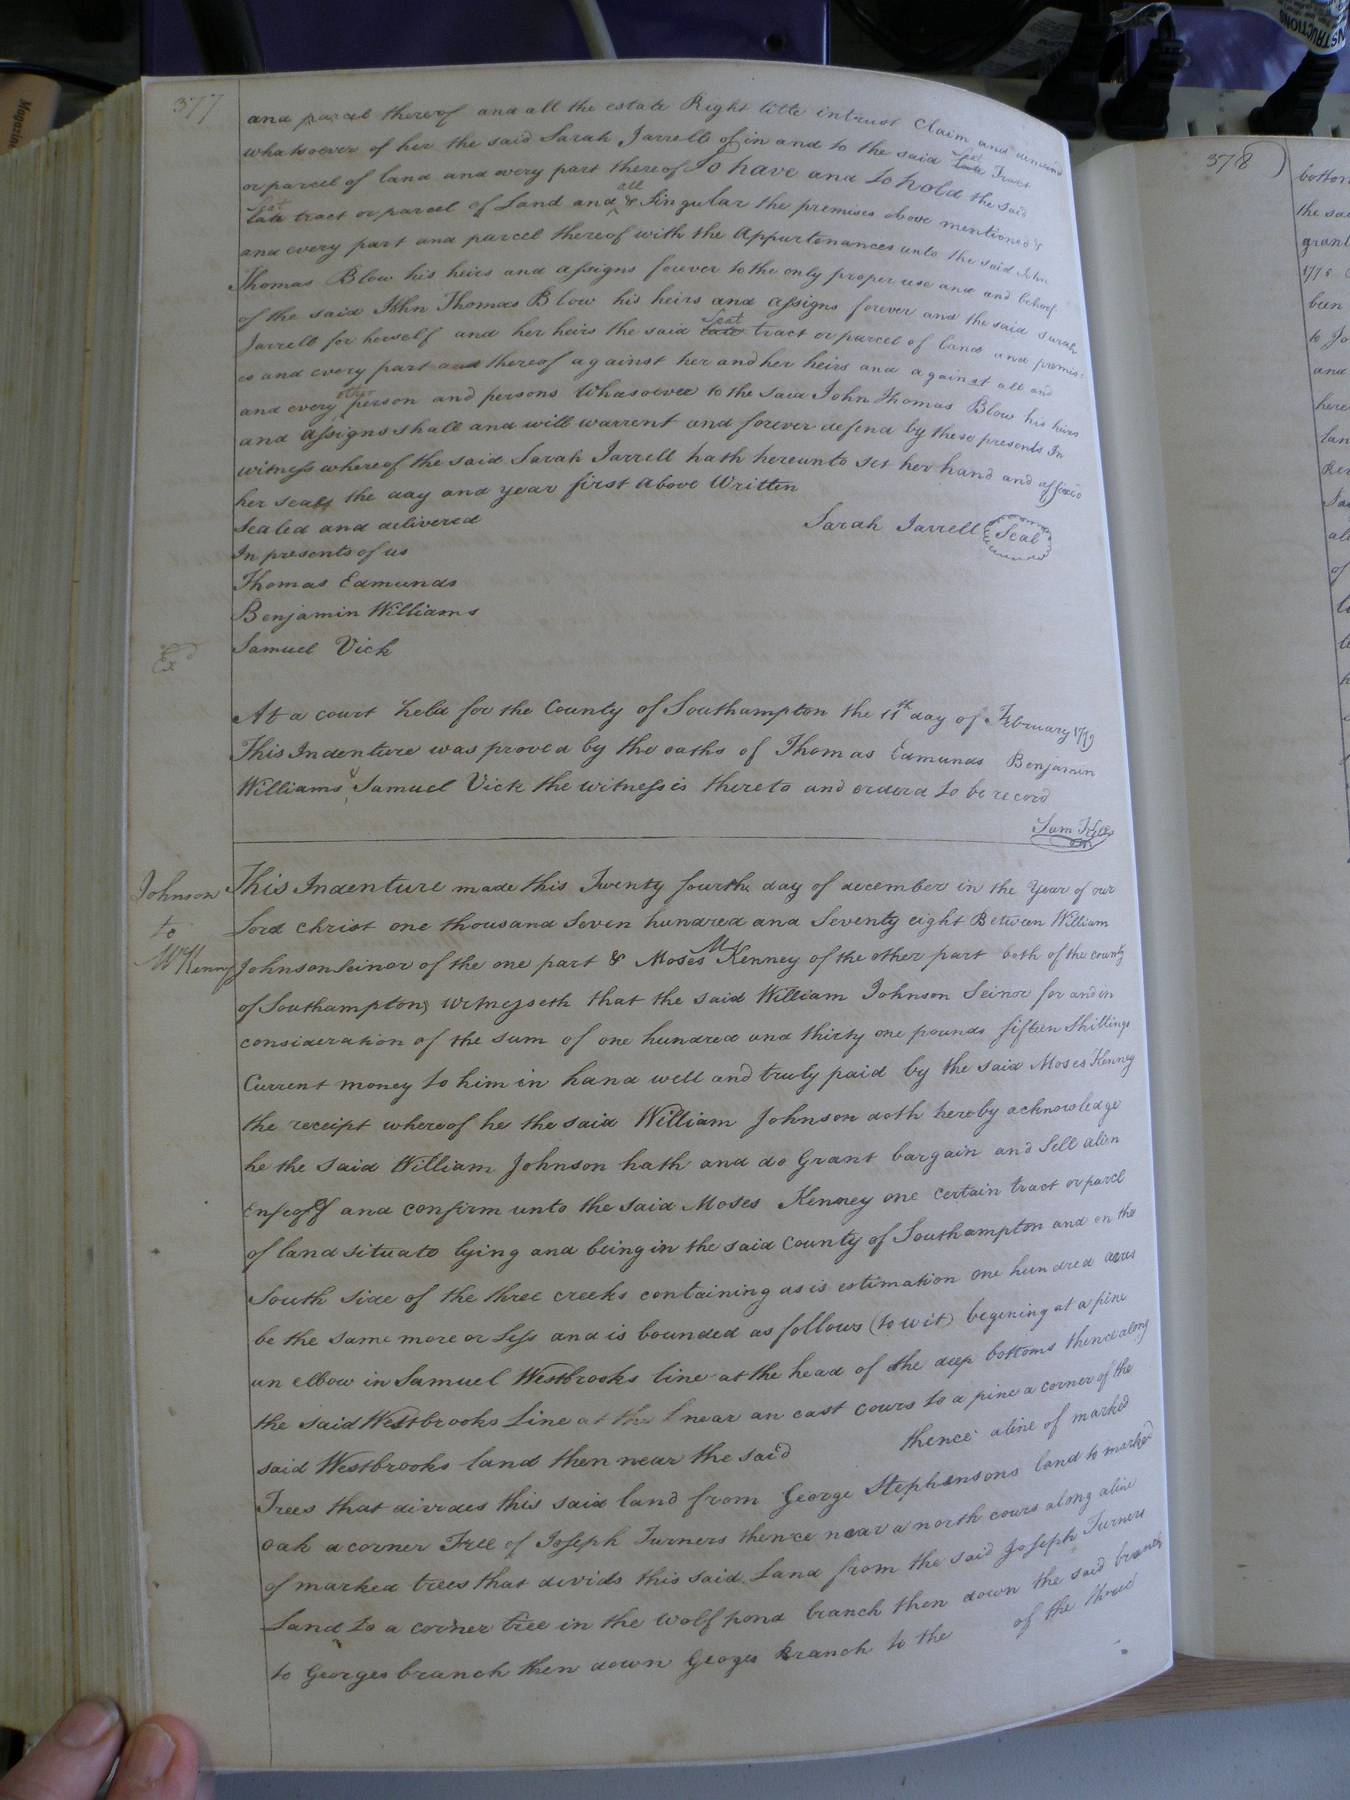 377
and parcel thereof and all the estate Right title intrust Claim and demand
whatsoever of her the said Sarah Jarrell of in and to the said late seat Tract
or parcel of land and every part thereof To have and to hold the said
late seat tract or parcel of Land and all & Singular the premises above mentioned &
and every part and parcel thereof with the Appurtenances unto the said John
Thomas Blow his heirs and assigns forever to the only proper use and and behoof
of the said John Thomas Blow his heirs and assigns forever and the said Sarah
Jarrell for herself and her heirs the said late seat tract or parcel of land and premis=
es and every part and thereof against her and her heirs and against all and
and every other person and persons Whasoever to the said John Thomas Blow his heirs
and assigns shall and will warrent and forever defend by these presents In
witness whereof the said Sarah Jarrell hath hereunto set her hand and affixed
her seal the day and year first above Written
Sealed and delivered
Sarah Jarrell Seal
In presents of us
Thomas Edmunds
Benjamin Williams
Samuel Vick
Exd
At a court held for the County of Southampton the 11th day of February 1779
This Indenture was proved by the oaths of Thomas Edmunds Benjamin
Williams & Samuel Vick the witnessis thereto and orderd to be record
Sam Kello
Johnson
to
McKenny
This Indenture made this Twenty fourth day of december in the Year of our
Lord christ one thousand Seven hundred and Seventy eight Between William
Johnson Seinor of the one part & Moses McKenney of the other part both of the county
of Southampton witnesseth that the said William Johnson Seinor for and in
consideration of the sum of one hundred and thirty one pounds fifteen Shillings
Current money to him in hand well and truly paid by the said Moses Kenney
the receipt whereof he the said William Johnson doth hereby acknowledge
he the said William Johnson hath and do Grant bargain and Sell alien
Enfeoff and confirm unto the said Moses Kenney one certain tract or parcl
of land situate lying and being in the said County of Southampton and on the
South side of the three creeks containing as is estimation one hundred acres
be the same more or less and is bounded as follows (to wit) begining at a pine
an elbow in Samuel Westbrooks line at the head of the deep bottoms thence along
the said Westbrooks Line at the near an east cours to a pine a corner of the
said Westbrooks land then near the said thence aline of marked
Trees that divides this said land from George Stephensons land to marked
oak a corner Tree of Joseph Turners thence near a north cours along aline
of marked trees that divids this said Land from the said Joseph Turners
Land to a corner tree in the wolf pond branch then down the said branch
to Georges branch then down Geoges Branch to the of the three
378
bottom
the sai
grant
1778
been
to Jo
and
here
lan
all
of